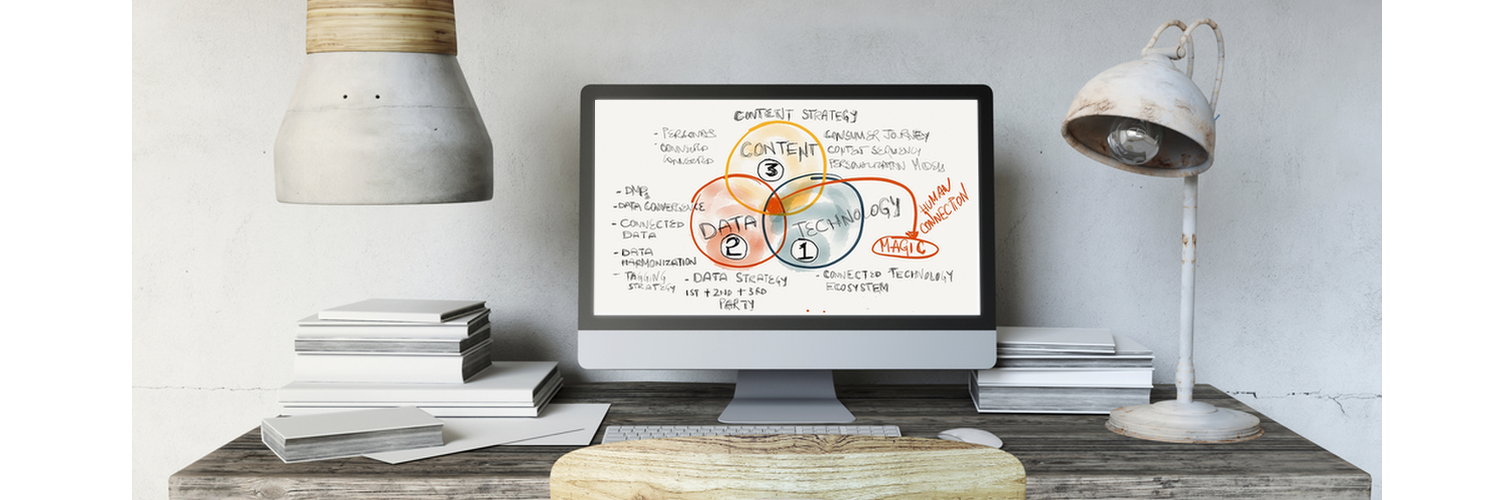 CONTENT STRATEGY
- PERSONAS
CONSUMER JOURNEY
CONTENT
CONTENT
PERSONALIZATION MODELS
3
- DMPs
- DATA CONVERGENCE
- CONNECTED
DATA
- DATA
HARMONIZATION
- TAGGING
STRATEGY
DATA
2
TECHNOLOGY
1
HUMAN
CONNECTION
MAGIC
- DATA STRATEGY
1ST + 2ND + 3RD
PARTY
- CONNECTED TECHNOLOGY
ECOSYSTEM